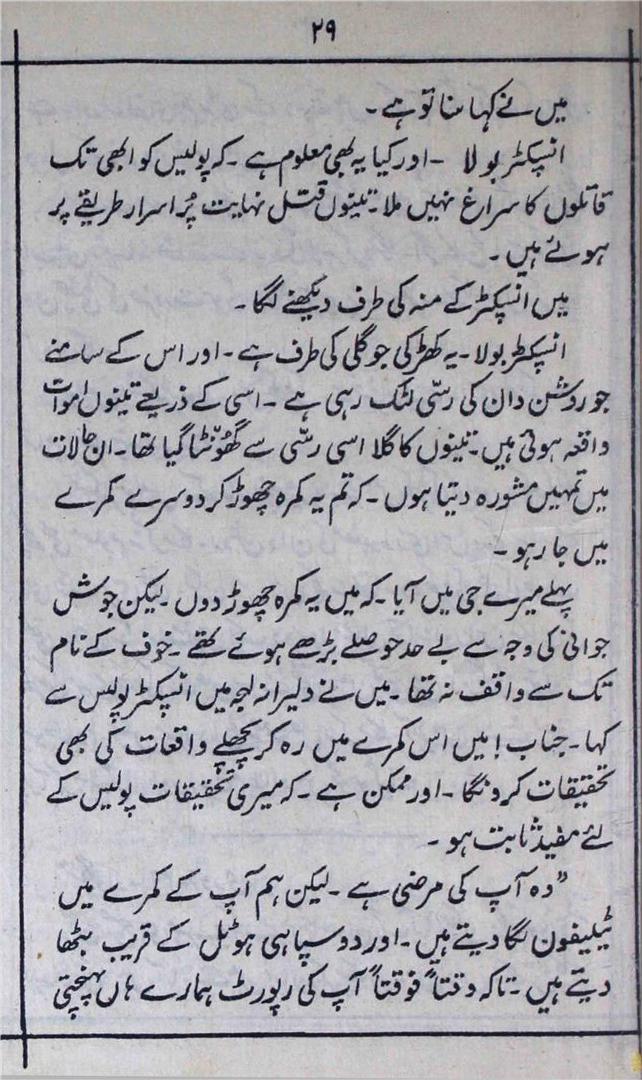 ۲۹
میں نے کہا سنا تو ہے ۔
انسپکٹر بولا ۔ اور کیا یہ بھی معلوم ہے ۔ کہ پولیس کو ابھی تک
قاتلوں کا سراغ نہیں ملا ۔ تینوں قتل نہایت پُر اسرار طریقے پر
ہوئے ہیں ۔
میں انسپکٹر کے منہ کی طرف دیکھنے لگا ۔
انسپکٹر بولا ۔ یہ کھڑکی جو گلی کی طرف ہے ۔ اور اس کے سامنے
جو روشن دان کی رسّی لٹک رہی ہے ۔ اسی کے ذریعے تینوں اموات
واقعہ ہوئی ہیں ۔ تینوں کا گلا اسی رسّی سے گھونٹا گیا تھا ۔ ان حالات
میں تمہیں مشورہ دیتا ہوں ۔ کہ تم یہ کمرہ چھوڑ کر دوسرے کمرے
میں جا رہو ۔
پہلے میرے جی میں آیا ۔ کہ میں یہ کمرہ چھوڑ دوں ۔ لیکن جوش
جوانی کی وجہ سے بے حد حوصلے بڑھے ہوئے تھے ۔ خوف کے نام
تک سے واقف نہ تھا ۔ میں نے دلیرانہ لہجہ میں انسپکٹر پولیس سے
کہا ۔ جناب ! میں اس کمرے میں رہ کر پچھلے واقعات کی بھی
تحقیقات کرونگا ۔ اور ممکن ہے ۔ کہ میری تحقیقات پولیس کے
لئے مفید ثابت ہو ۔
”وہ آپ کی مرضی ہے ۔ لیکن ہم آپ کے کمرے میں
ٹیلیفون لگا دیتے ہیں ۔ اور دو سپاہی ہوٹل کے قریب بٹھا
دیتے ہیں ۔ تاکہ وقتاً فوقتاً آپ کی رپورٹ ہمارے ہاں پہنچتی